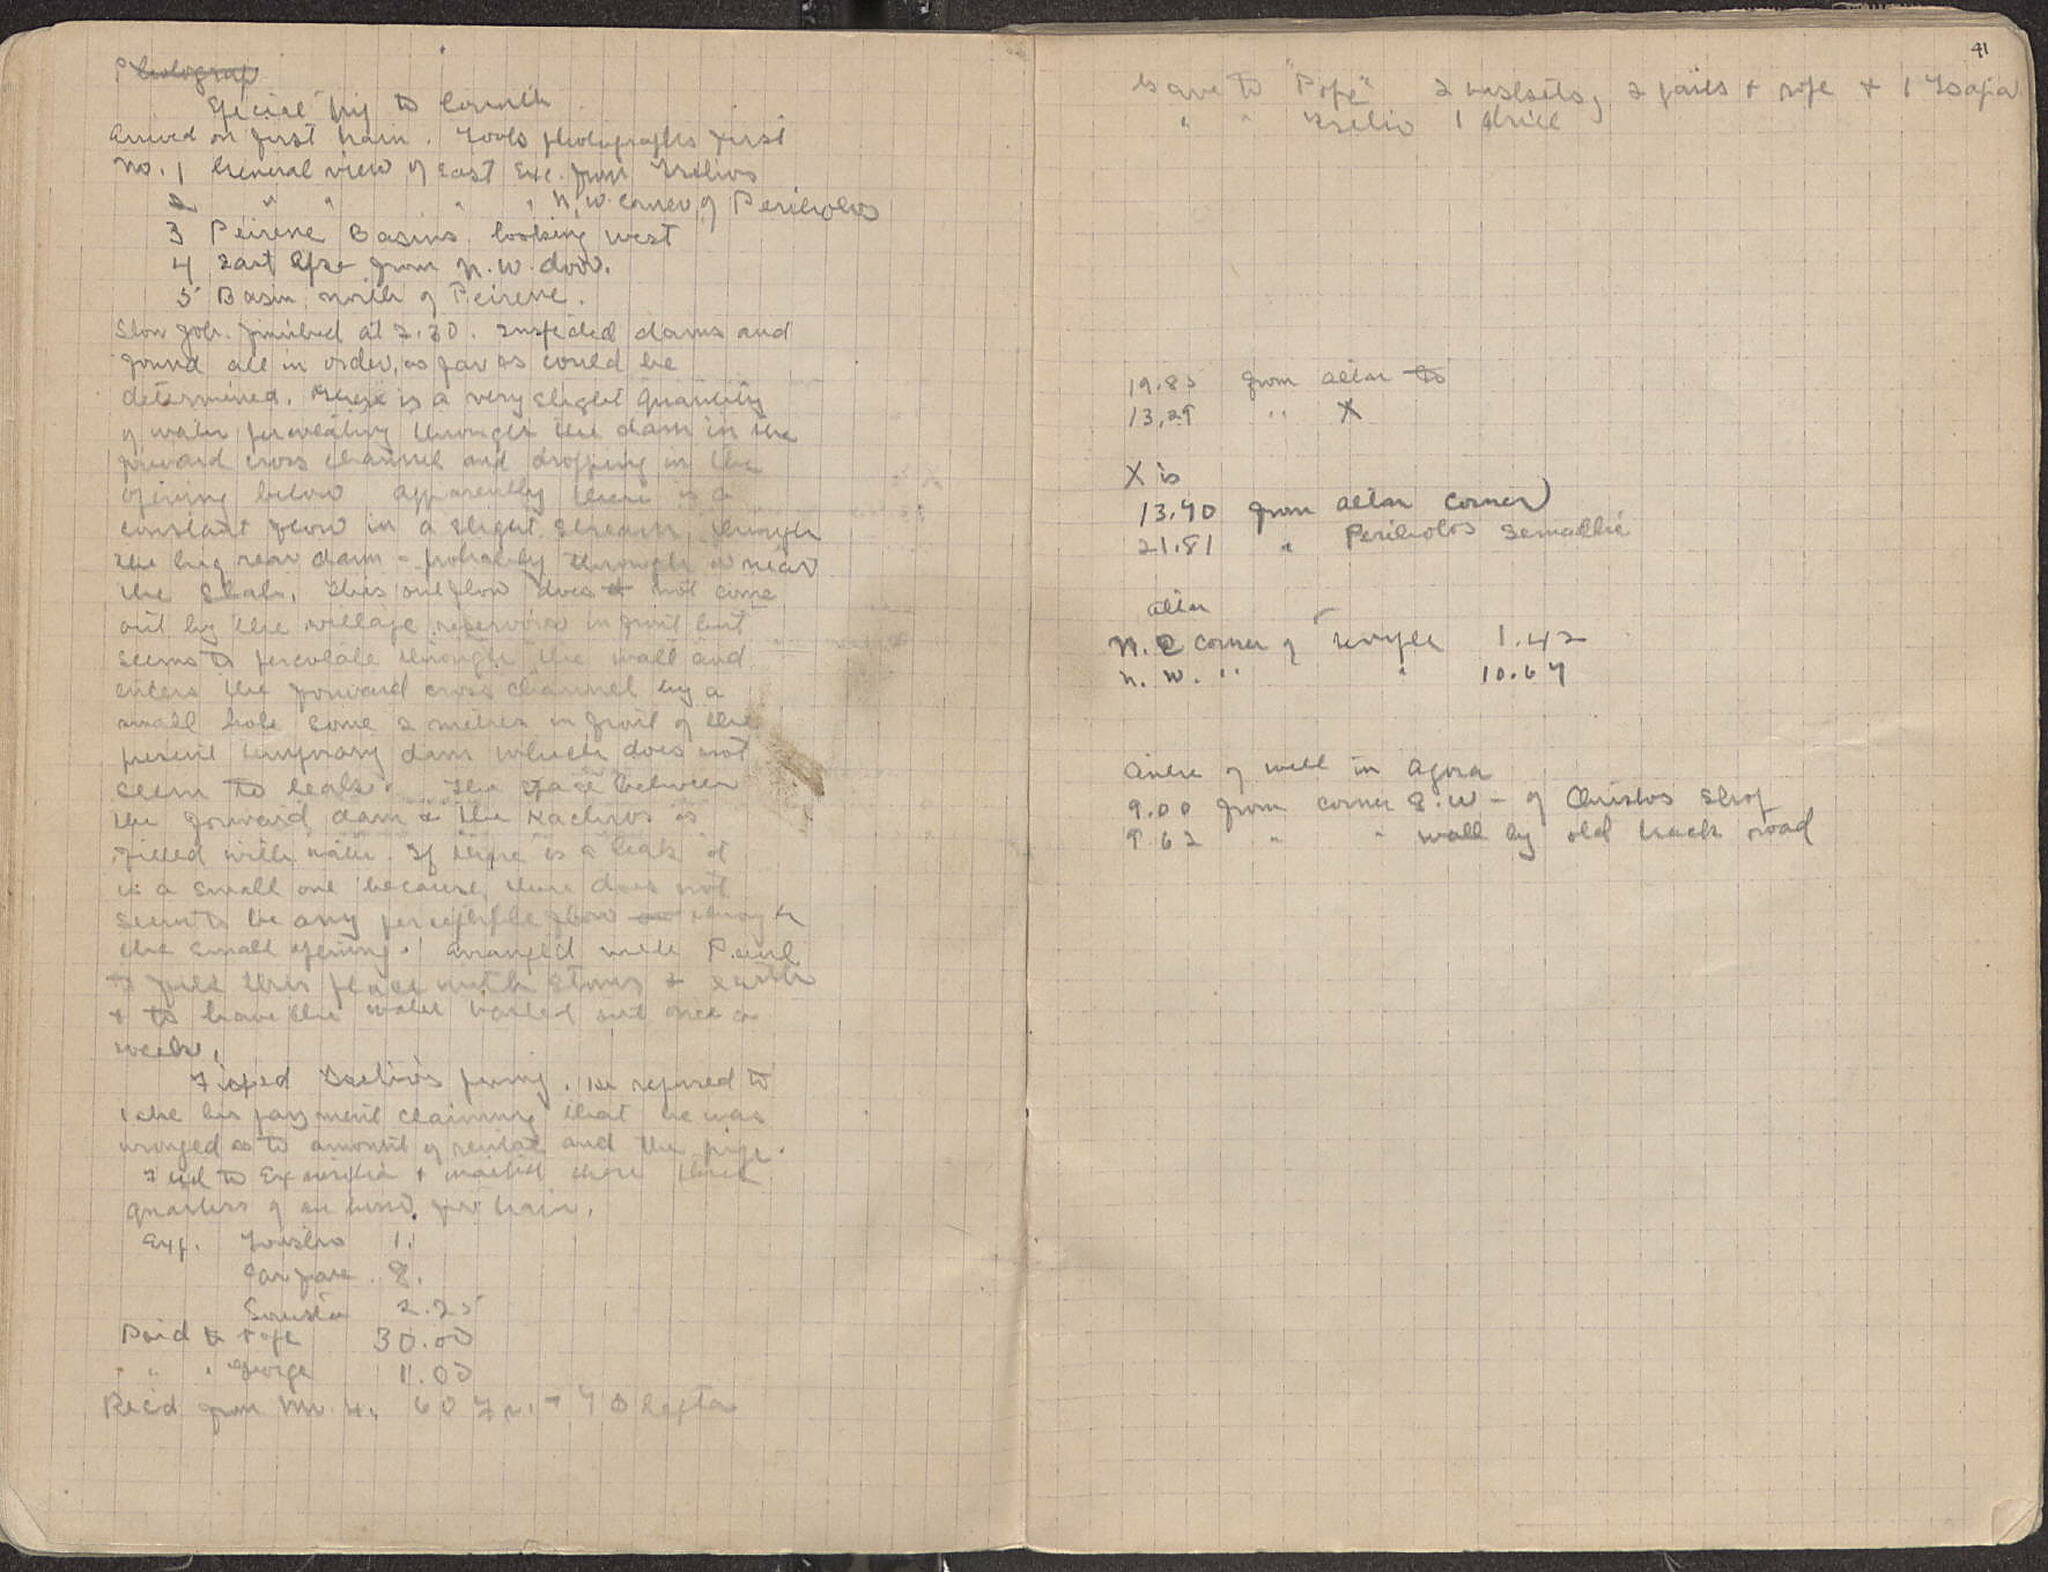 Photograp
Special trip to Corinth
Arrived on first train. Took photographs first
No. 1 General view of East Exc. from
2 " " " " N.W. corner of Peribolos
3 Peirene Basins looking west
4 East Apse from N.W. door.
5 Basin north of Peirene.
Slow job. Finished at 2.30. Inspected dams and
found all in order, as far as could be
determined. There is a very slight quantity
of water percolating through the dam in the
forward cross channel and dropping in the
opening below. Apparently there is a
constant flow in a slight stream, through
the big rear dam - probably through or near
the slab. This outflow does not come
out by the village reservoir in front but
seems to percolate through the wall and
enters the forward cross channel by a
small hole some 2 metres in front of the
present temporary dam which does not
seem to leak. The space between
the forward dam & the is
filled with water. If there is a leak it
is a small one because there does not
seem to be any perceptible flow through
the small opening. Arranged with
to fill this place with stones & earth
& to have the water bailed out once a
week.
Fixed fencing. He refused to
take his payment claiming that he was
wronged as to amount of rental and the pipe.
to Examilia & waited there three
quarters of an hour for train.
Exp. 1.
Car fare 8.
Sousta 2.25
Paid to Pope 30.00
" " " George 11.00
Rec'd from Mr. H. 60 Fr. + 70 lepta
41
Gave to "Pope" 2 baskets, 2 pails & rope & 1 Tsapa
" " 1 drill
19.85 from altar to
13.29 " X
X is
13.40 from altar corner
21.81 " Peribolos
altar
N.E corner of temple 1.42
N.W. " " 10.67
Centre of well in Agora
9.00 from corner S.W - of Christos shop
9.62 " " wall by old track road